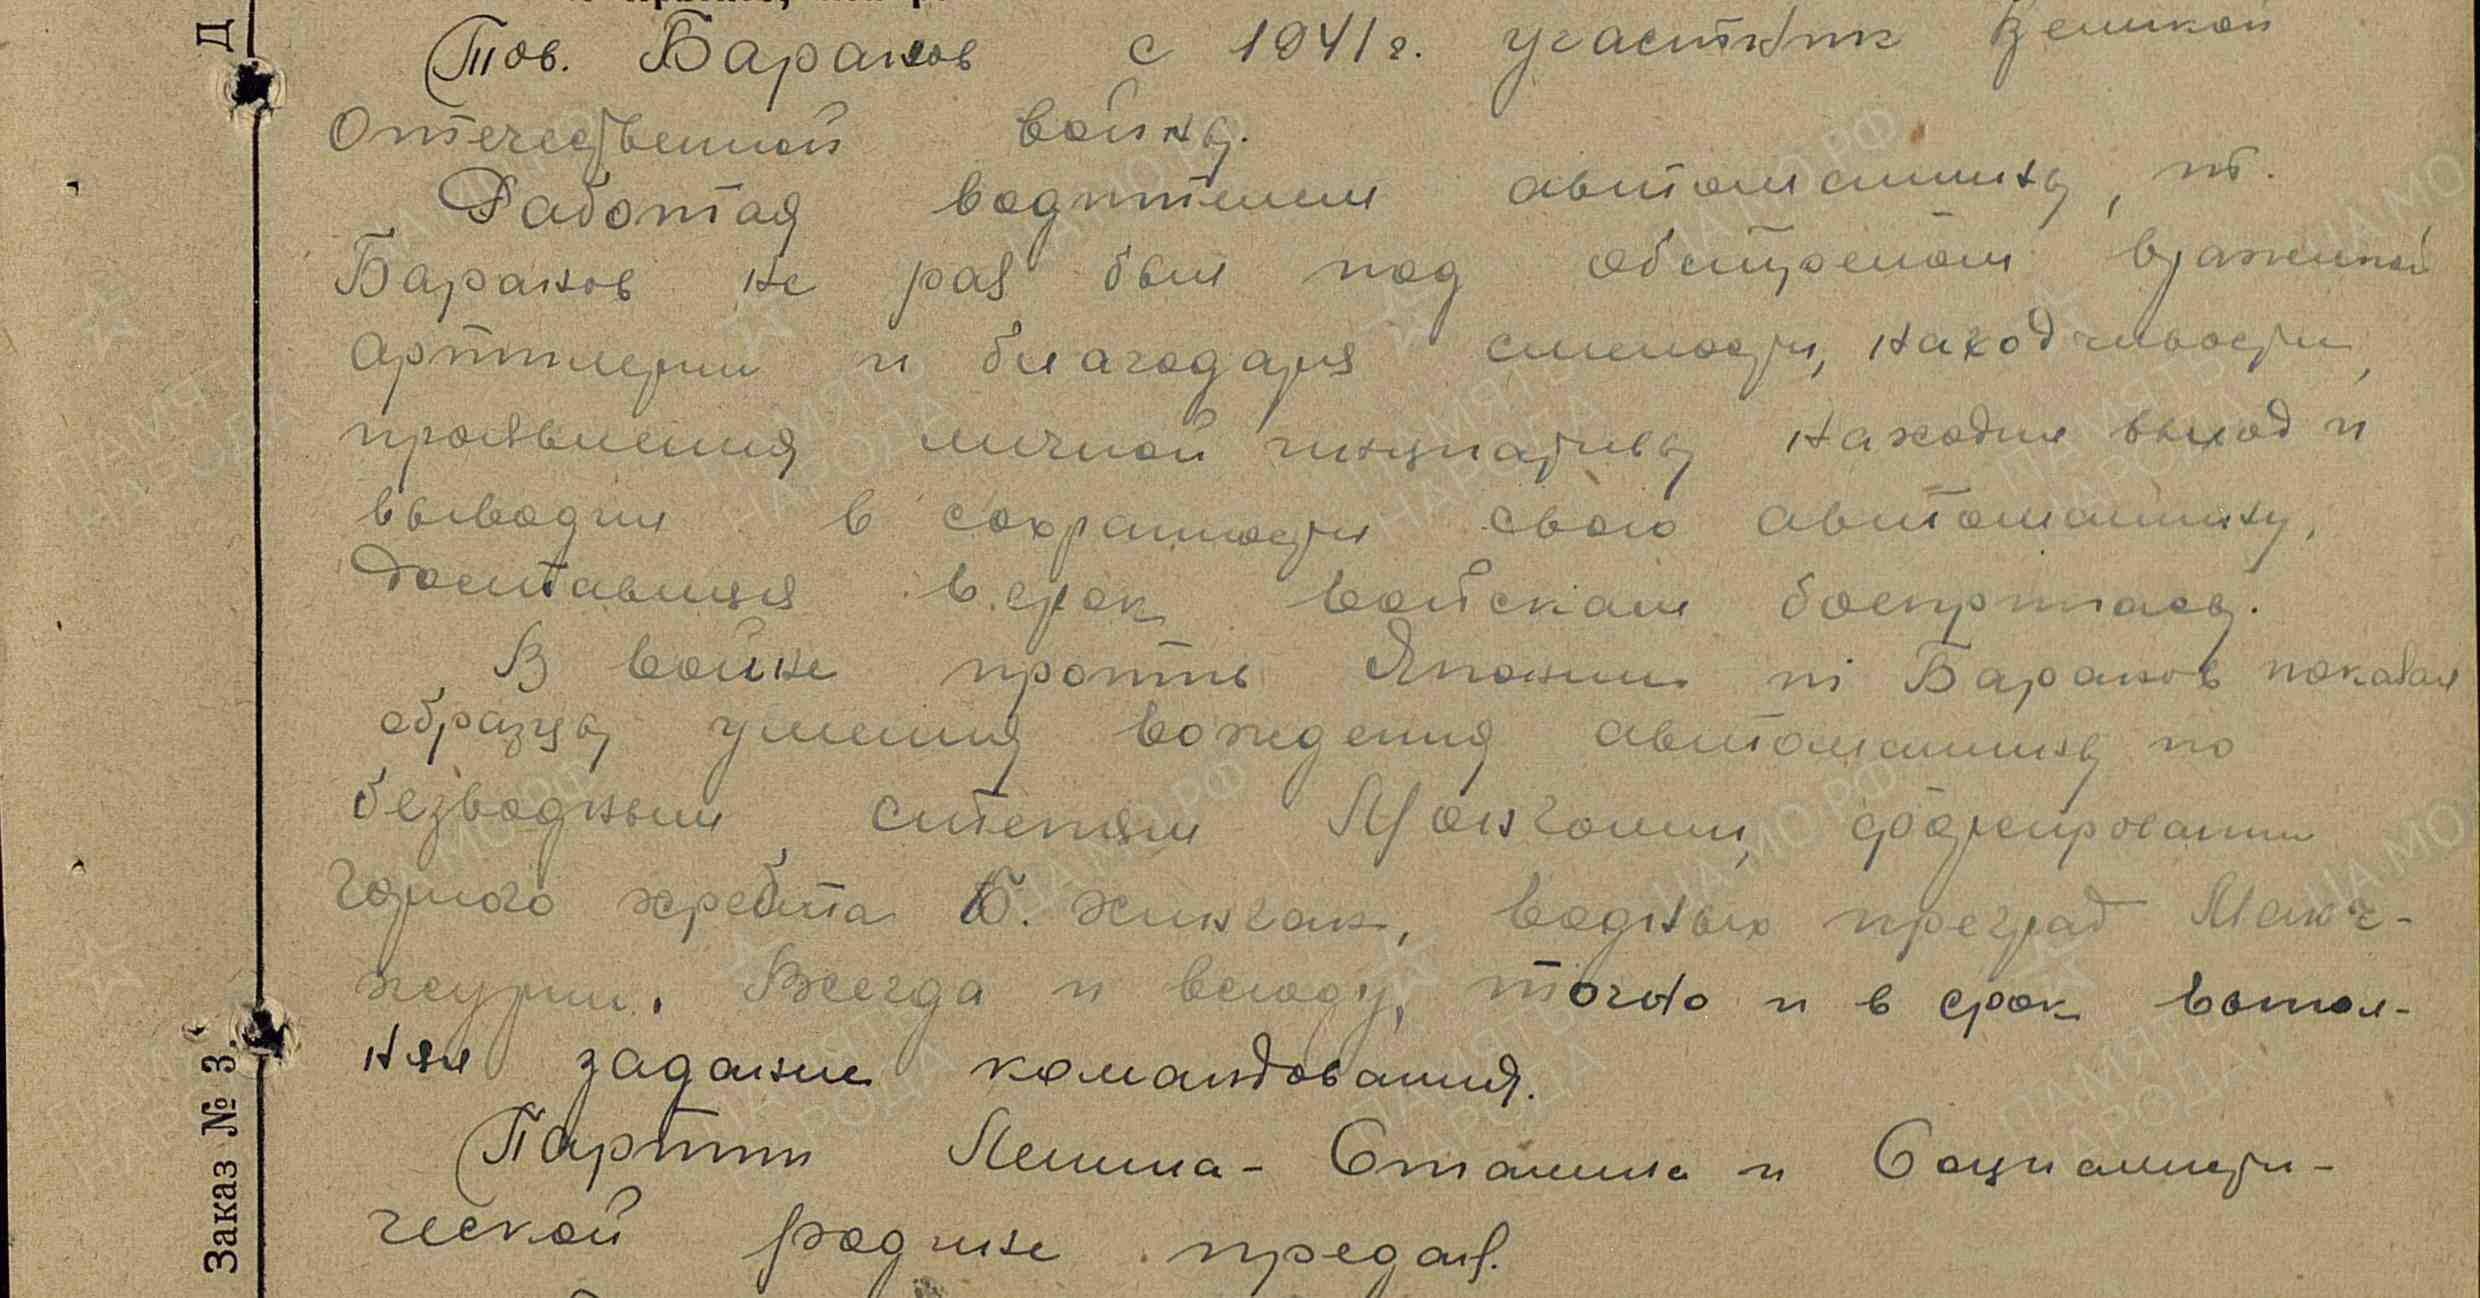 Тов. Баранов с 1941 г. участник Великой
Отечественной войны.
Работая водителем автомашины, т.
Баранов не раз был под обстрелом вражеской
артиллерии и благодаря смелости, находчивости,
проявления личной инициативы находил выход и
выводил в сохранности свою автомашину,
доставляя в срок войскам боеприпасы.
В войне против Японии т Баранов показал
образцы умения вождения автомашины по
безводным степям Монголии, форсировании
горного хребта Б. Хинган, водных преград Манч-
журии. Всегда и всюду, точно и в срок выпол-
нял задание командования.
Партии Ленина - Сталина и Социалисти-
ческой родине предан.
Заказ № 3.
Д
ПАМЯТЬ НАРОДА
ЦАМО РФ